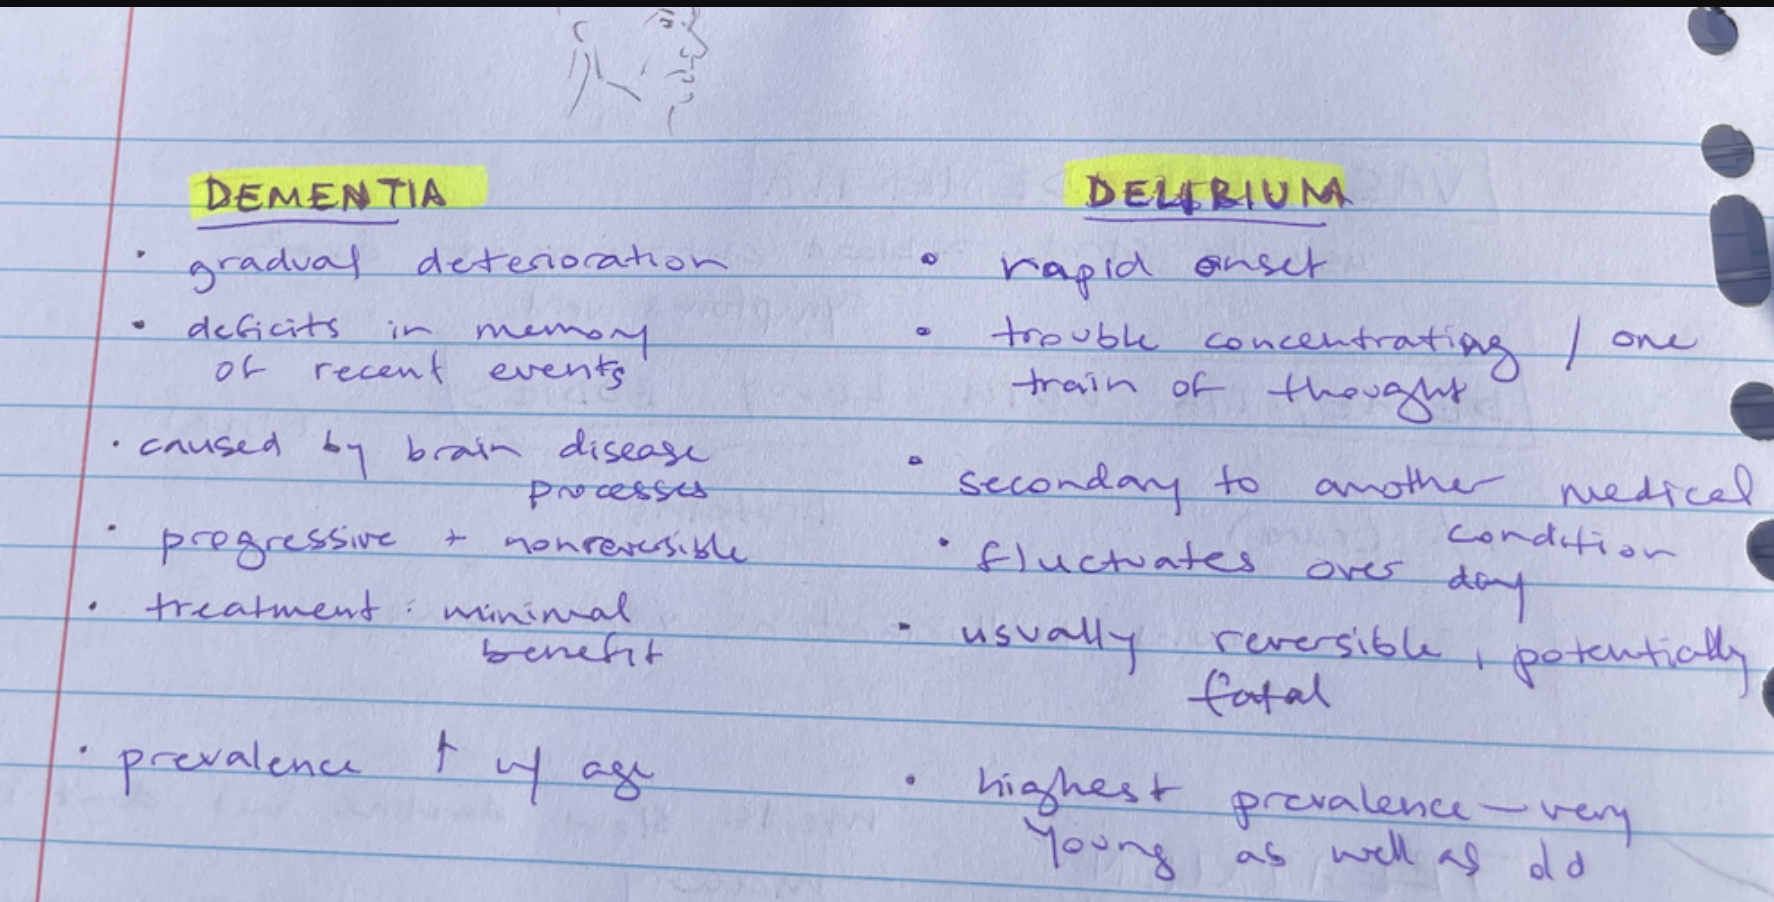 DEMENTIA
· gradual deterioration
· deficits in memory
of recent events
· caused by brain disease
processes
· progressive + nonreversible
· treatment : minimal
benefit
· prevalence ↑ w/ age
DELIRIUM
· rapid onset
· trouble concentrating / one
train of thought
· secondary to another medical
condition
· fluctuates over day
· usually reversible, potentially
fatal
· highest prevalence – very
young as well as old